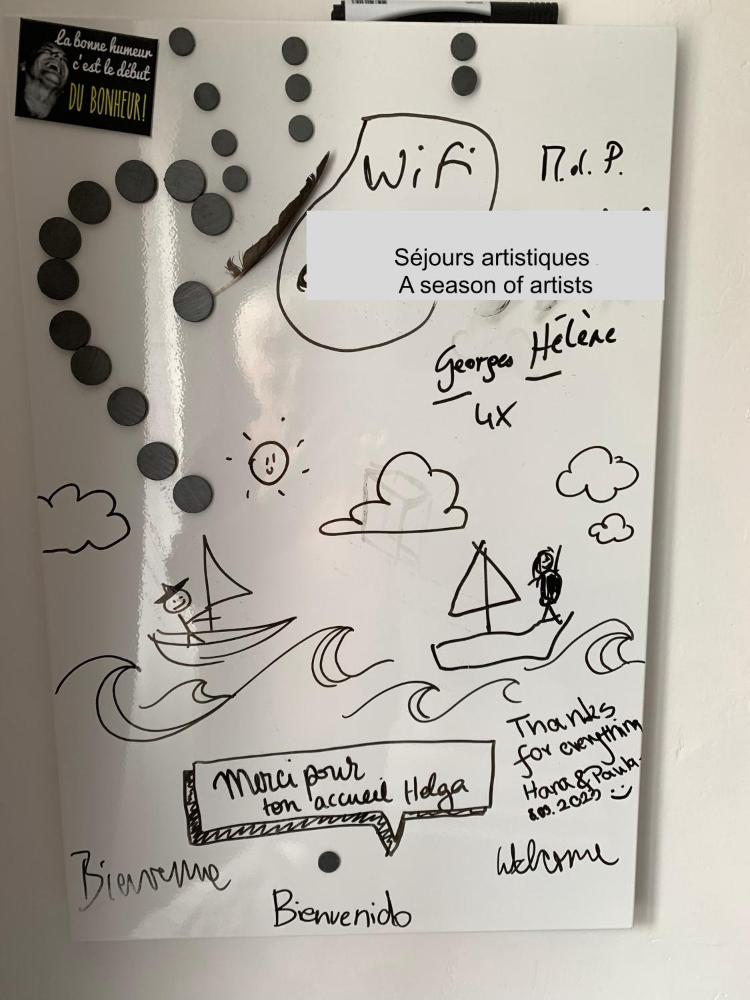 la bonne humeur
c'est le début
DU BONHEUR!
Wifi
M.d.P.
Séjours artistiques
A season of artists
Georges Hélène
4X
Thanks
for everything
Hana & Paula
2023
Merci pour
ton accueil Helga
Bienvenue
Welcome
Bienvenido